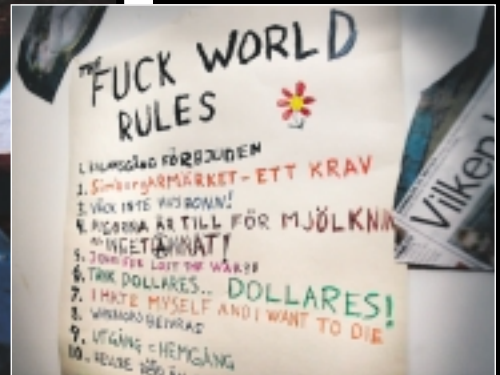 THE
FUCK WORLD
RULES
1. BALANSGÅNG FÖRBJUDEN
2. SimborgARMÄRKET-ETT KRAV
3. VÄCK INTE HUSBONN!
4. PIGORNA ÄR TILL FÖR MJÖLKNIN
INGET ANNAT!
5. JENNIFER LOST THE WAR??
6. TÄNK DOLLARES.. DOLLARES!
7. I HATE MYSELF AND I WANT TO DIE
8. BEIVRAS
9. UTGÅNG = HEMGÅNG
10. HELLRE DÖD ÄN
Vilken